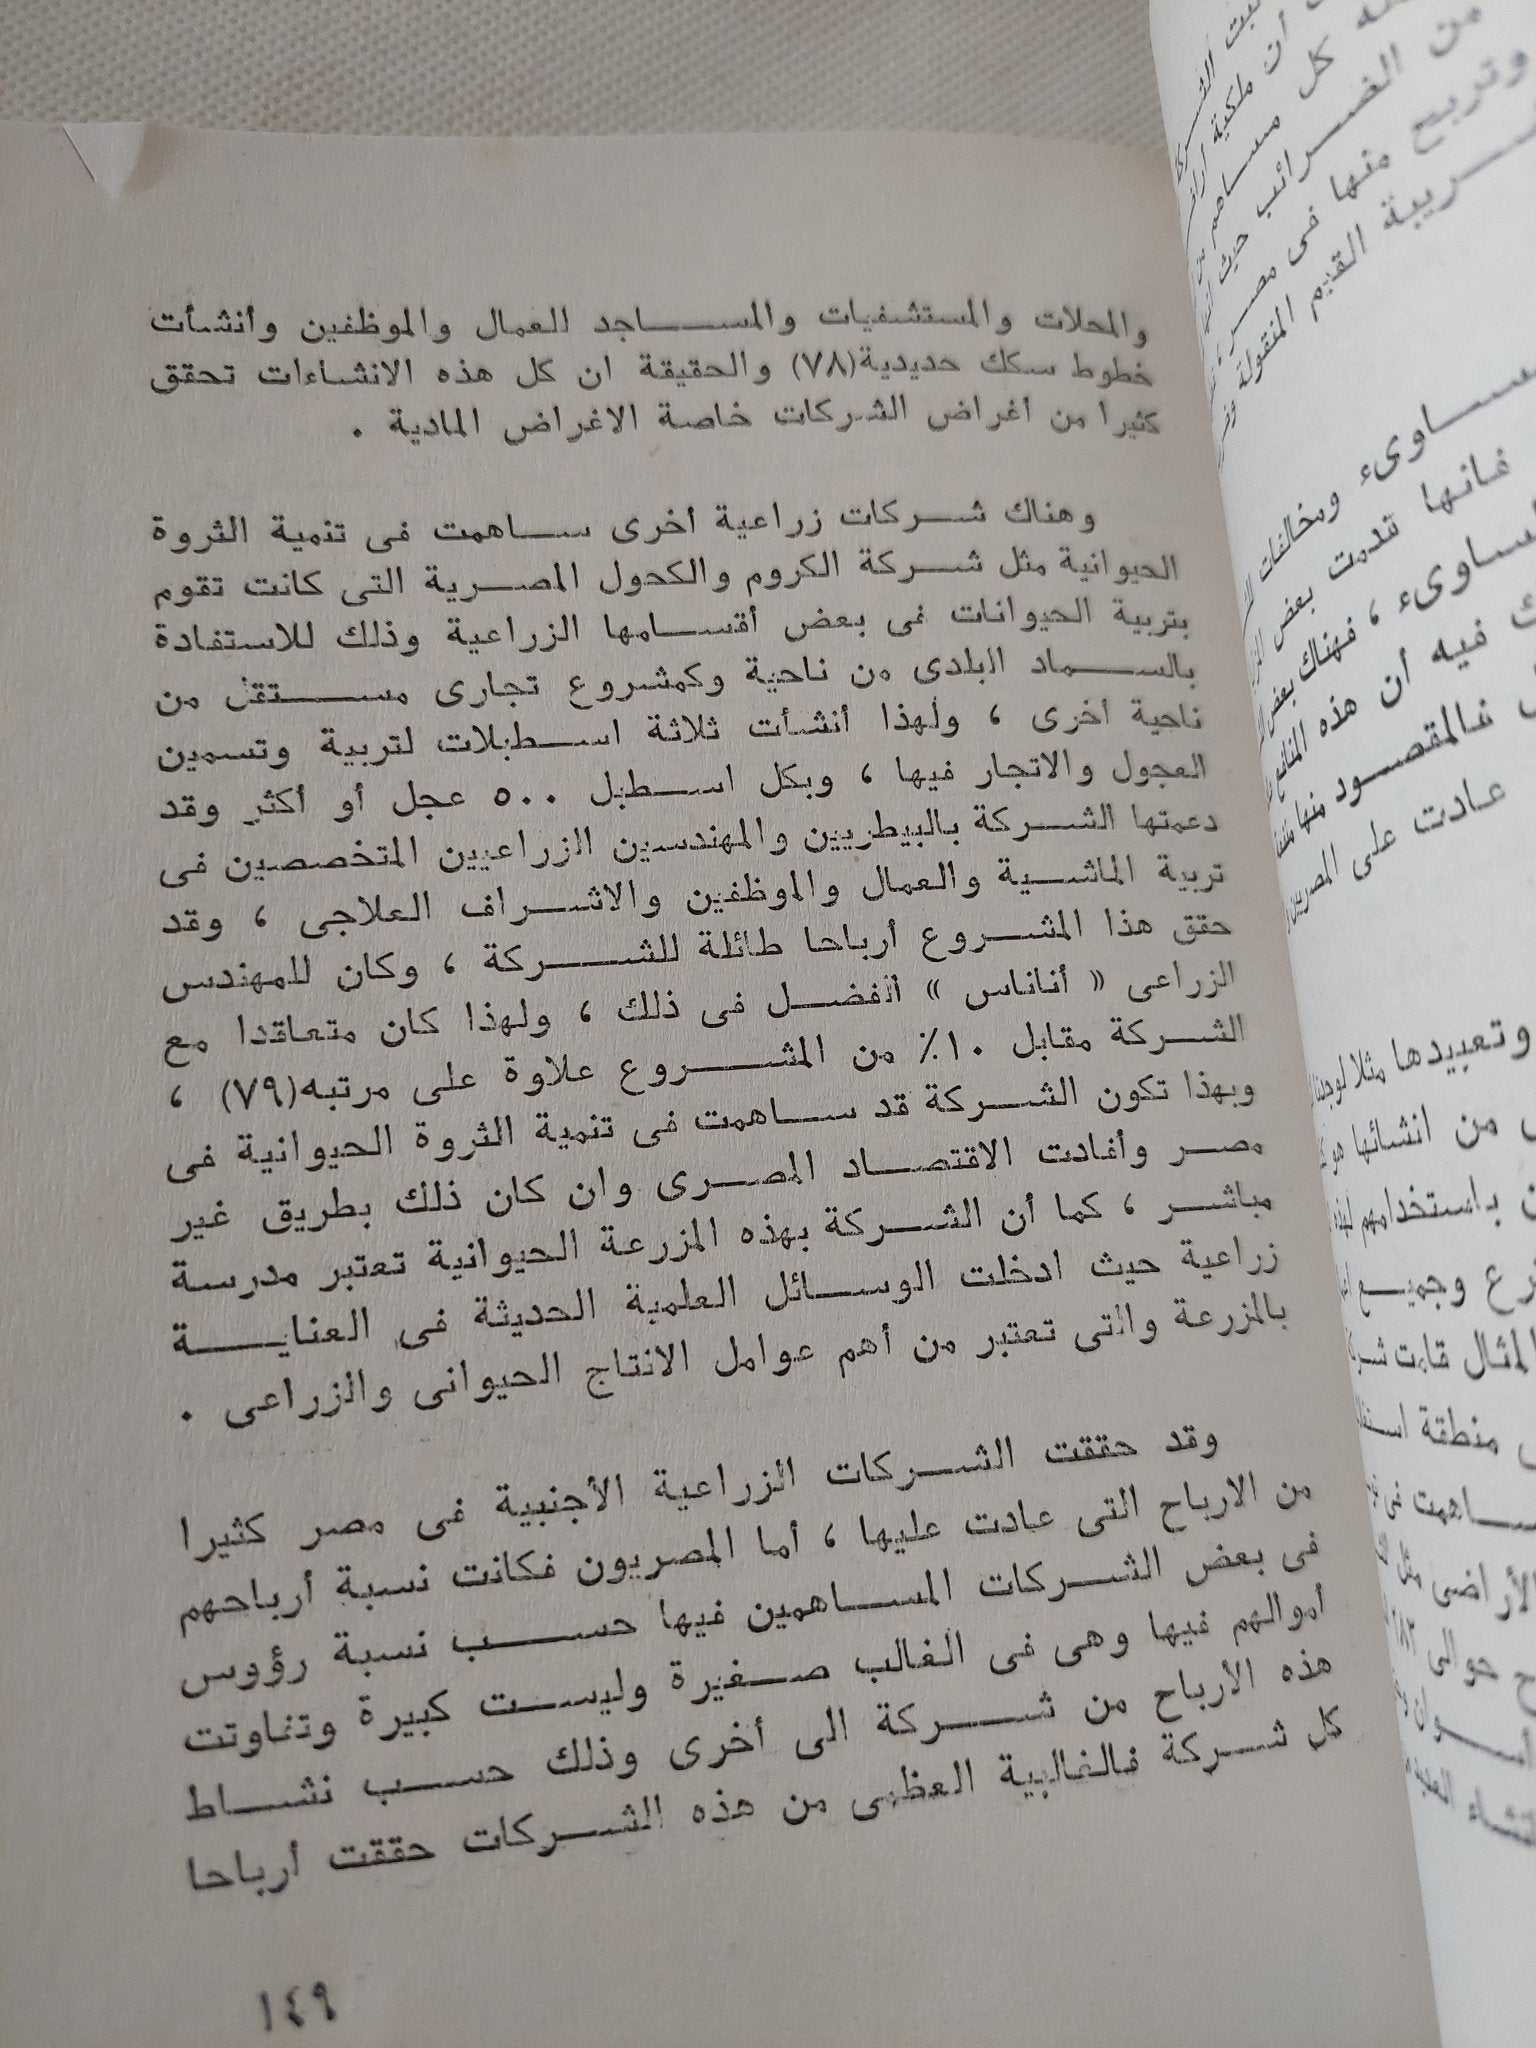 والمحلات والمستشفيات والمساجد للعمال والموظفين وأنشأت
خطوط سكك حديدية(٧٨) والحقيقة ان كل هذه الانشاءات تحقق
كثيرا من أغراض الشركات خاصة الاغراض المادية .
وهناك شركات زراعية أخرى ساهمت فى تنمية الثروة
الحيوانية مثل شركة الكروم والكحول المصرية التى كانت تقوم
بتربية الحيوانات فى بعض أقسامها الزراعية وذلك للاستفادة
بالسماد البلدى من ناحية وكمشروع تجارى مستقل من
ناحية أخرى ، ولهذا أنشأت ثلاثة اسطبلات لتربية وتسمين
العجول والاتجار فيها ، وبكل اسطبل ٥٠٠ عجل أو أكثر وقد
دعمتها الشركة بالبيطريين والمهندسين الزراعيين المتخصصين فى
تربية الماشية والعمال والموظفين والاشراف العلاجى ، وقد
حقق هذا المشروع أرباحا طائلة للشركة ، وكان للمهندس
الزراعى « أناناس » الفضل فى ذلك ، ولهذا كان متعاقدا مع
الشركة مقابل ١٠٪ من المشروع علاوة على مرتبه(٧٩) ،
وبهذا تكون الشركة قد ساهمت فى تنمية الثروة الحيوانية فى
مصر وأفادت الاقتصاد المصرى وان كان ذلك بطريق غير
مباشر ، كما أن الشركة بهذه المزرعة الحيوانية تعتبر مدرسة
زراعية حيث ادخلت الوسائل العلمية الحديثة فى العناية
بالمزرعة والتى تعتبر من أهم عوامل الانتاج الحيوانى والزراعى .
وقد حققت الشركات الزراعية الأجنبية فى مصر كثيرا
من الارباح التى عادت عليها ، أما المصريون فكانت نسبة أرباحهم
فى بعض الشركات المساهمين فيها حسب نسبة رؤوس
أموالهم فيها وهى فى الغالب صغيرة وليست كبيرة وتفاوتت
هذه الأرباح من شركة الى أخرى وذلك حسب نشاط
كل شركة فالغالبية العظمى من هذه الشركات حققت أرباحا
١٤٩
من الضرائب حيث
وتربح منها فى مصر
القيم المنقولة
ومخالفات
فانها قدمت بعض
فهناك بعض
فيه أن هذه المنافع
فالمقصود منها
عادت على المصريين
وتعبيدها مثلا لوجدنا
من انشائها هو
باستخدامهم
وجميع
المثال قامت
منطقة
ساهمت فى
الأراضى مثل
حوالى